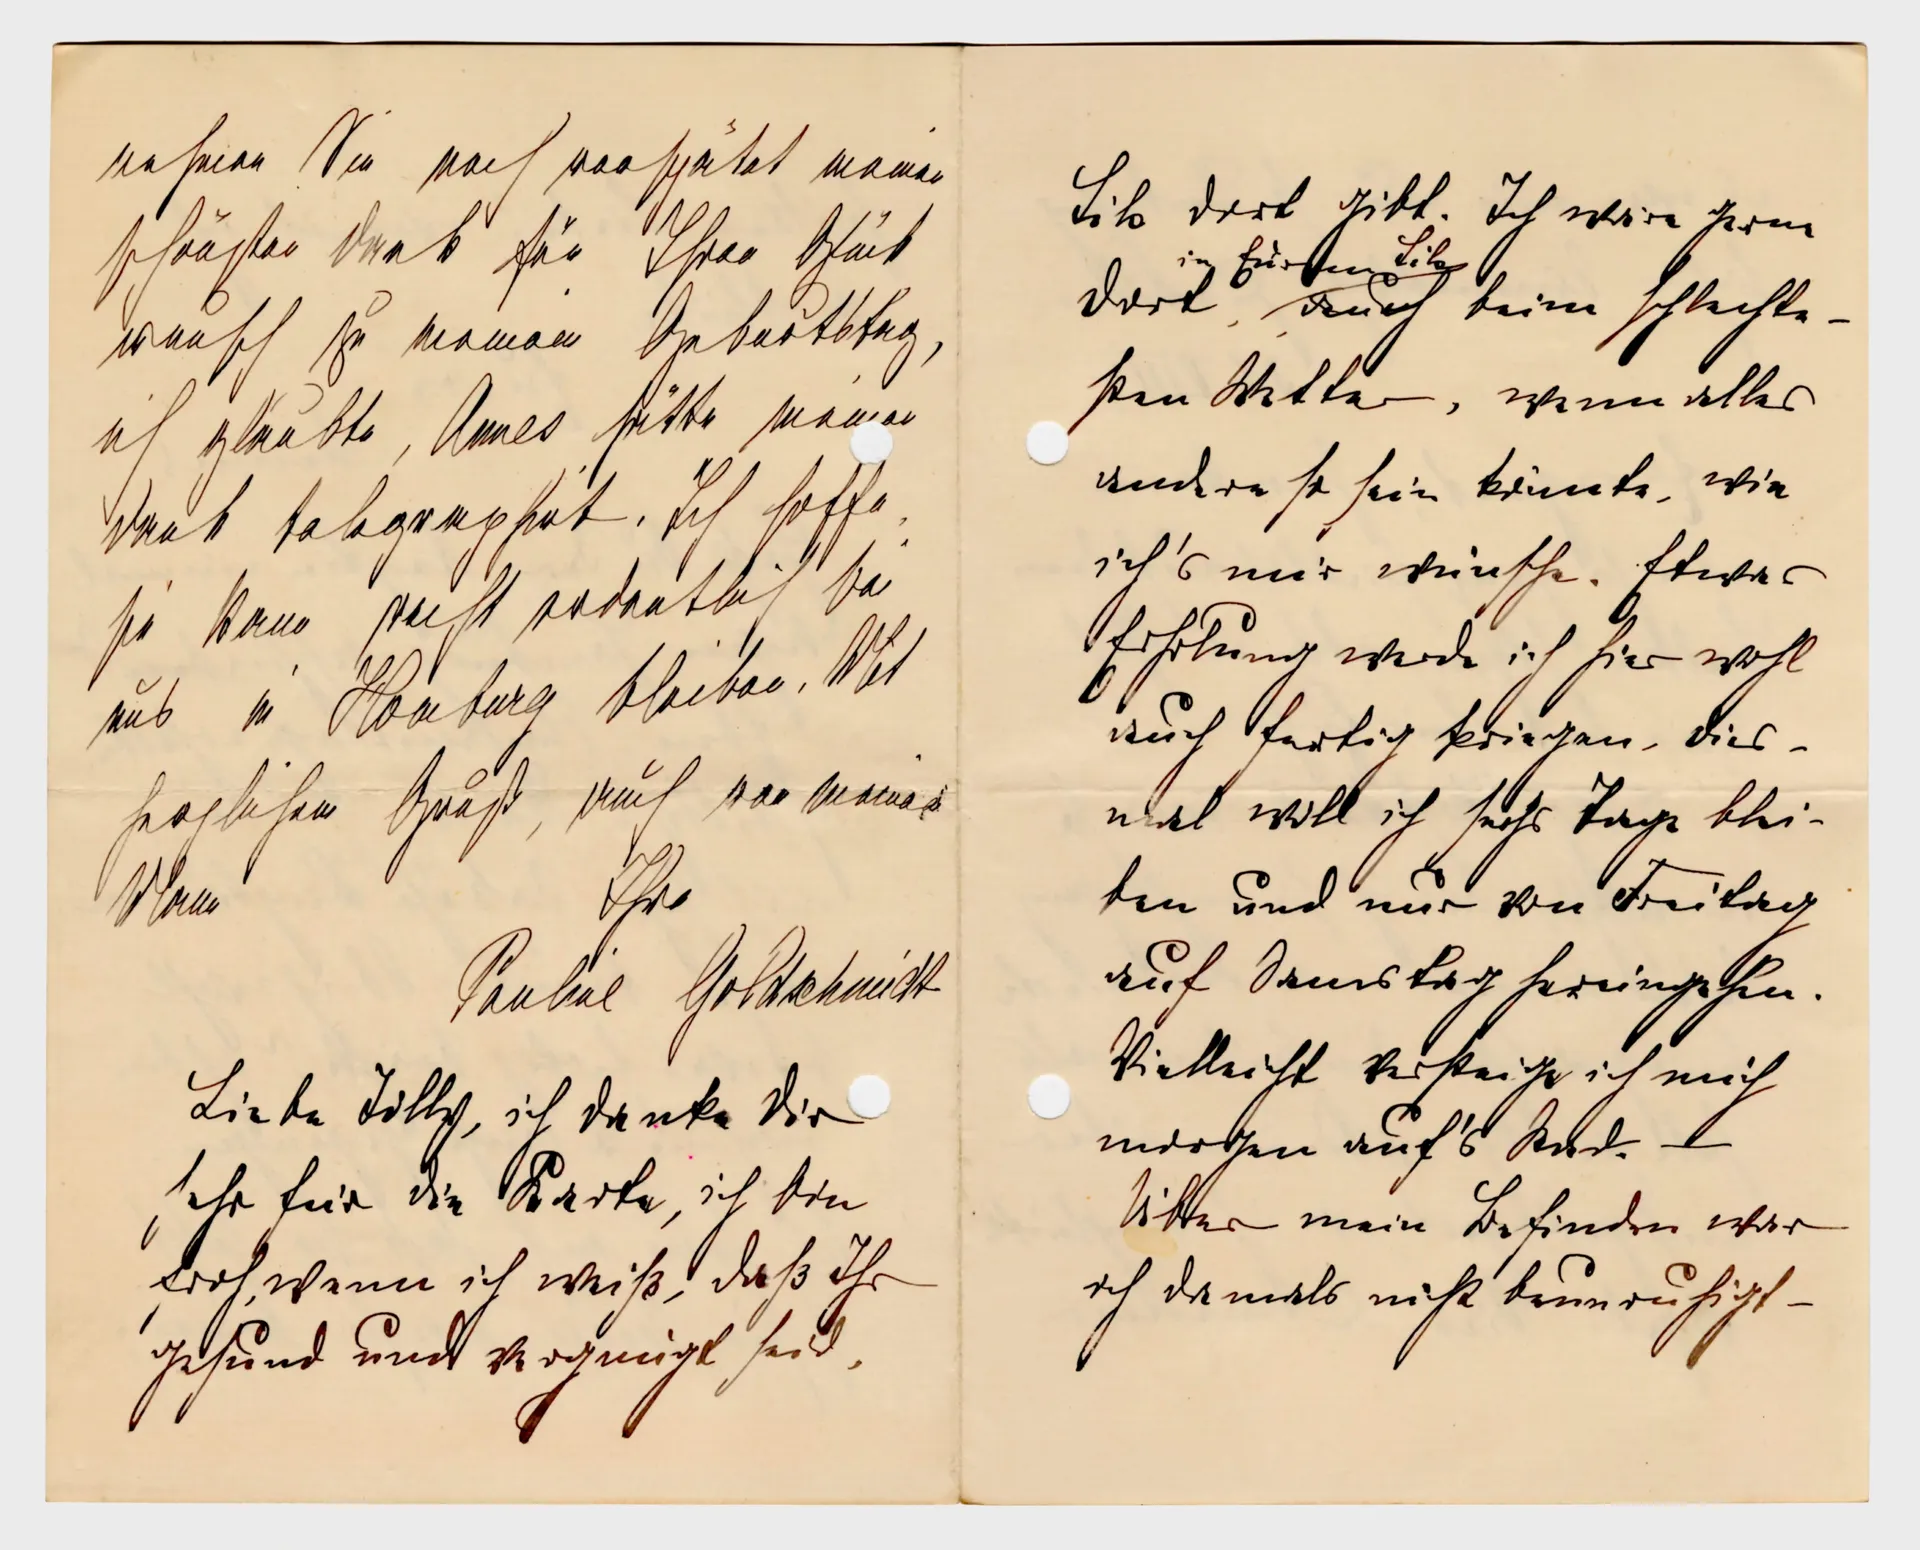 nehmen Sie noch verspätet meinen
schönsten Dank für Ihren Glück
wunsch zu meinem Geburtstag,
ich glaubte, Annes hätte meinen
Dank telegraphirt. Ich hoffe,
sie kann recht ordentlich bei
uns in Homburg bleiben. Mit
herzlichem Gruß, auch von meinem
Mann Ihre
Pauline Goldschmidt
Liebe Tilly, ich danke Dir
sehr für die Karte, ich bin
froh, wenn ich weiß, daß Ihr
gesund und vergnügt seid.
Sils dort gibt. Ich wäre gern
in Eurem Sils
dort, auch beim schlechte-
sten Wetter, wenn alles
andere so sein könnte, wie
ich's mir wünsche. Etwas
Erholung werde ich hier wohl
auch fertig kriegen, dies-
mal will ich sechs Tage blei-
ben und nur von Freitag
auf Samstag hereingehen.
Vielleicht versteige ich mich
morgen auf's Rad. —
Über mein Befinden war
ich damals nicht beunruhigt –